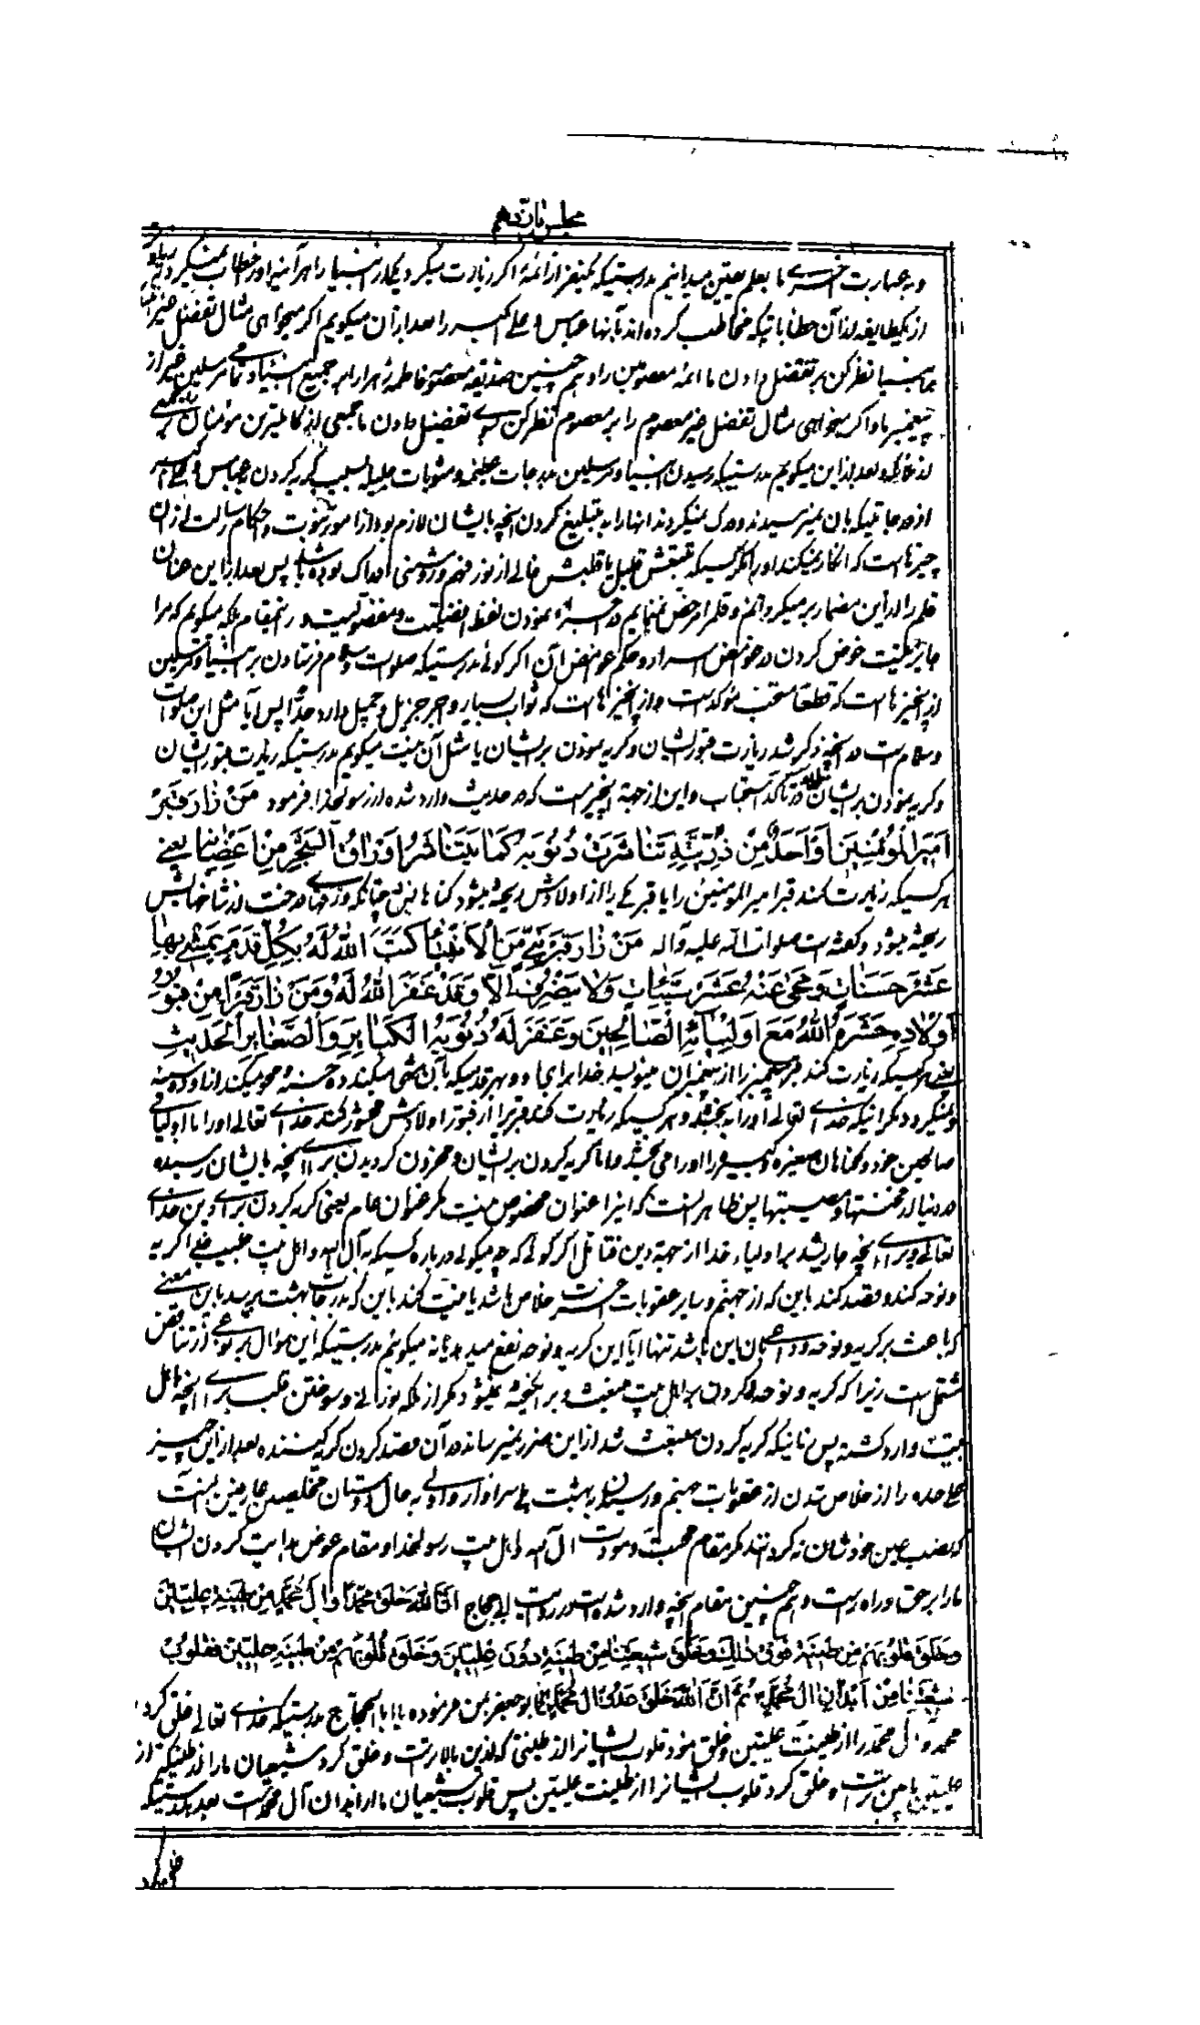 مجلس پانزدهم
وبعبارت اخرے ما بعلم یقین میدانیم بدرستیکه یکنفر از ائمهٔ اگر زیارت میکرد یکے از انبیا را هر آینه او را خطاب نمیکرد
از یکطایفه از آن خطاباتیکه مخاطب کرده اند بآنها عباس و علے اکبر را بعد از آن میکویم اکر میخواهی مثال تفضیل غیر انبیا
بانبیا نظر کن بر تفضیل دادن ما ائمه معصومین را و هم چنین صدیقه معصومه فاطمه زهرا را بر جمیع انبیا و تمام مرسلین غیر از
پیغمبر ما و اکر میخواهی مثال تفضیل غیر معصوم را بر معصوم نظر کن بسوے تفضیل دادن ما جمعی از کاملترین مؤمنان
بعد از این میکویم بدرستیکه رسیدن انبیا و مرسلین بدرجات عظیمه و مثوبات جلیله بسبب کریه کردن بر عباس و علے اکبر
از درجاتیکه بآن نمیرسیدند و درک نمیکردند آنها را به تبلیغ کردن آنچه بایشان لازم بود از امور نبوت و احکام رسالت از آن
چیزهاست که انکار نمیکند او را مکر کسیکه قلبش خالے از نور فهم و روشنی ادراک بوده باشد پس بعد از این عنان
قلم را از این مضمار بر میکردانم و قلم را مرخص نمینمایم در جسته نمودن لفظ افضلیت و مفضولیت در این مقام بلکه میکویم که مرا
جایز نیست خوض کردن در غوامض اسرار و حکم غوامض آن اکر کوئے بدرستیکه صلوات و سلام فرستادن بر انبیا و مرسلین
از چیزهاست که قطعا مستحب مؤکد است و از چیزهاست که ثواب بسیار و اجر جزیل و جمیل دارد جداً پس آیا مثل این صلوات
و سلام است در آنچه ذکر شد زیارت قبور ایشان و کریه نمودن بر ایشان یا مثل آن نیست میکویم بدرستیکه زیارت قبور ایشان
و کریه نمودن بر ایشان در تأکد استحباب و این از جهة آنچیز است که در حدیث وارد شده از رسولخدا فرمود مَنْ زَارَ قَبْرَ
اَمیرِ الْمُؤْمِنینَ اَوْ اَحَدٍ مِنْ ذُرِّیَّتِهِ تَنَاثَرَتْ ذُنُوبُهُ کَمَا یَتَنَاثَرُ اَوْرَاقُ الشَّجَرِ مِنْ اَغْصَانِهَا یعنے
هر کسیکه زیارت کند قبر امیر المؤمنین را یا قبر یکے را از اولادش ریخته میشود کناهانش چنانکه ورقهاے درخت از شاخهایش
ریخته میشود و کفته است صلوات الله علیه و آله مَنْ زَارَ قَبْرَ نَبِیٍّ مِنَ الْاَنْبِیَاءِ کَتَبَ اللهُ لَهُ بِکُلِّ قَدَمٍ یَمْشِی بِهَا
عَشْرَ حَسَنَاتٍ وَ مَحٰی عَنْهُ عَشْرَ سَیِّئَاتٍ وَ لَا یَنْصَرِفُ اِلَّا وَ قَدْ غَفَرَ اللهُ لَهُ وَ مَنْ زَارَ قَبْرًا مِنْ قُبُورِ
اَوْلَادِهِ حَشَرَهُ اللهُ مَعَ اَوْلِیَائِهِ الصَّالِحِینَ وَ غَفَرَ لَهُ ذُنُوبَهُ الْکَبَائِرَ وَ الصَّغَائِرَ الْحَدیثِ
یعنے هر کسیکه زیارت کند قبر پیغمبرے را از پیغمبران مینویسد خدا براے او بهر قدمیکه بآن مشی میکند ده حسنه و محو میکند از او ده سیئه
و بر نمیکردد مکر اینکه خداے تعالے او را بخشد و هر کسیکه زیارت کند قبرے را از قبور اولادش محشور کند خداے تعالے او را با اولیاے
صالحین خود و کناهان صغیره و کبیره او را مے بخشد و اما کریه کردن بر ایشان و محزون کردیدن براے آنچه بایشان رسیده
در دنیا از محنتها و مصیبتها پس ظاهر اینست که اینرا عنوان مخصوص نیست مکر عنوان عام یعنی کریه کردن براے دین خداے
تعالے و براے آنچه جاریشده بر اولیاء خدا از جهة دین فتأمل اکر کوئے که چه میکوئے در باره کسیکه بر آل الله و اهل بیت حبیب خدا کریه
و نوحه کند و قصد کند باین که از جهنم و سایر عقوبات آخرت خلاص باشد یا نیت کند باین که بدرجات بهشت برسد باین معنے
که باعث بر کریه و نوحه و داعے بآن این باشد تنها آیا این کریه و نوحه نفع میدهد یا نه میکویم بدرستیکه این سؤال بر نوعے از تناقض
مشتمل است زیرا که کریه و نوحه کردن بر اهل بیت منبعث و برانکیخته نمیشود مکر از ملکه نورانے و سوختن قلب براے آنچه باهل
بیت وارد کشته پس زمانیکه کریه کردن منبعث شد از این ضرر نمیرساند در آن قصد کردن کریه کننده بعد از این چیز
علے حده را از خلاص شدن از عقوبات جهنم و رسیدن به بهشت بلے سزاوار و اولے به حال دوستان مخلصین عارفین اینست
که نصب عین خودشان نکردانند مکر مقام محبت و مودت آل الله و اهل بیت رسولخدا و مقام عوض هدایت کردن ایشان
ما را بر حق و راه راست و هم چنین مقام آنچه وارد شده است در روایت ابے الحجاج اِنَّ اللهَ خَلَقَ مُحَمَّدًا وَ آلَ مُحَمَّدٍ مِنْ طِینَةِ عِلِّیِّینَ
وَ خَلَقَ قُلُوبَهُمْ مِنْ طِینَةٍ فَوْقَ ذٰلِکَ وَ خَلَقَ شِیعَتَنَا مِنْ طِینَةٍ دُونَ عِلِّیِّینَ وَ خَلَقَ قُلُوبَهُمْ مِنْ طِینَةِ عِلِّیِّینَ فَقُلُوبُ
شِیعَتِنَا مِنْ اَبْدَانِ آلِ مُحَمَّدٍ ثُمَّ اَنَّ اللهَ خَلَقَ عَدُوَّ آلِ مُحَمَّدٍ ابو جعفر بمن فرموده یا ابا الحجاج بدرستیکه خداے تعالے خلق کرد
محمد و آل محمد را از طینت علیین و خلق نمود قلوب ایشانرا از طینتی که از این بالاتر است و خلق کرد شیعیان ما را از طینتیکه از
علیین پائین تر است و خلق کرد قلوب ایشانرا از طینت علیین پس قلوب شیعیان ما از ابدان آل محمد است بعد بدرستیکه